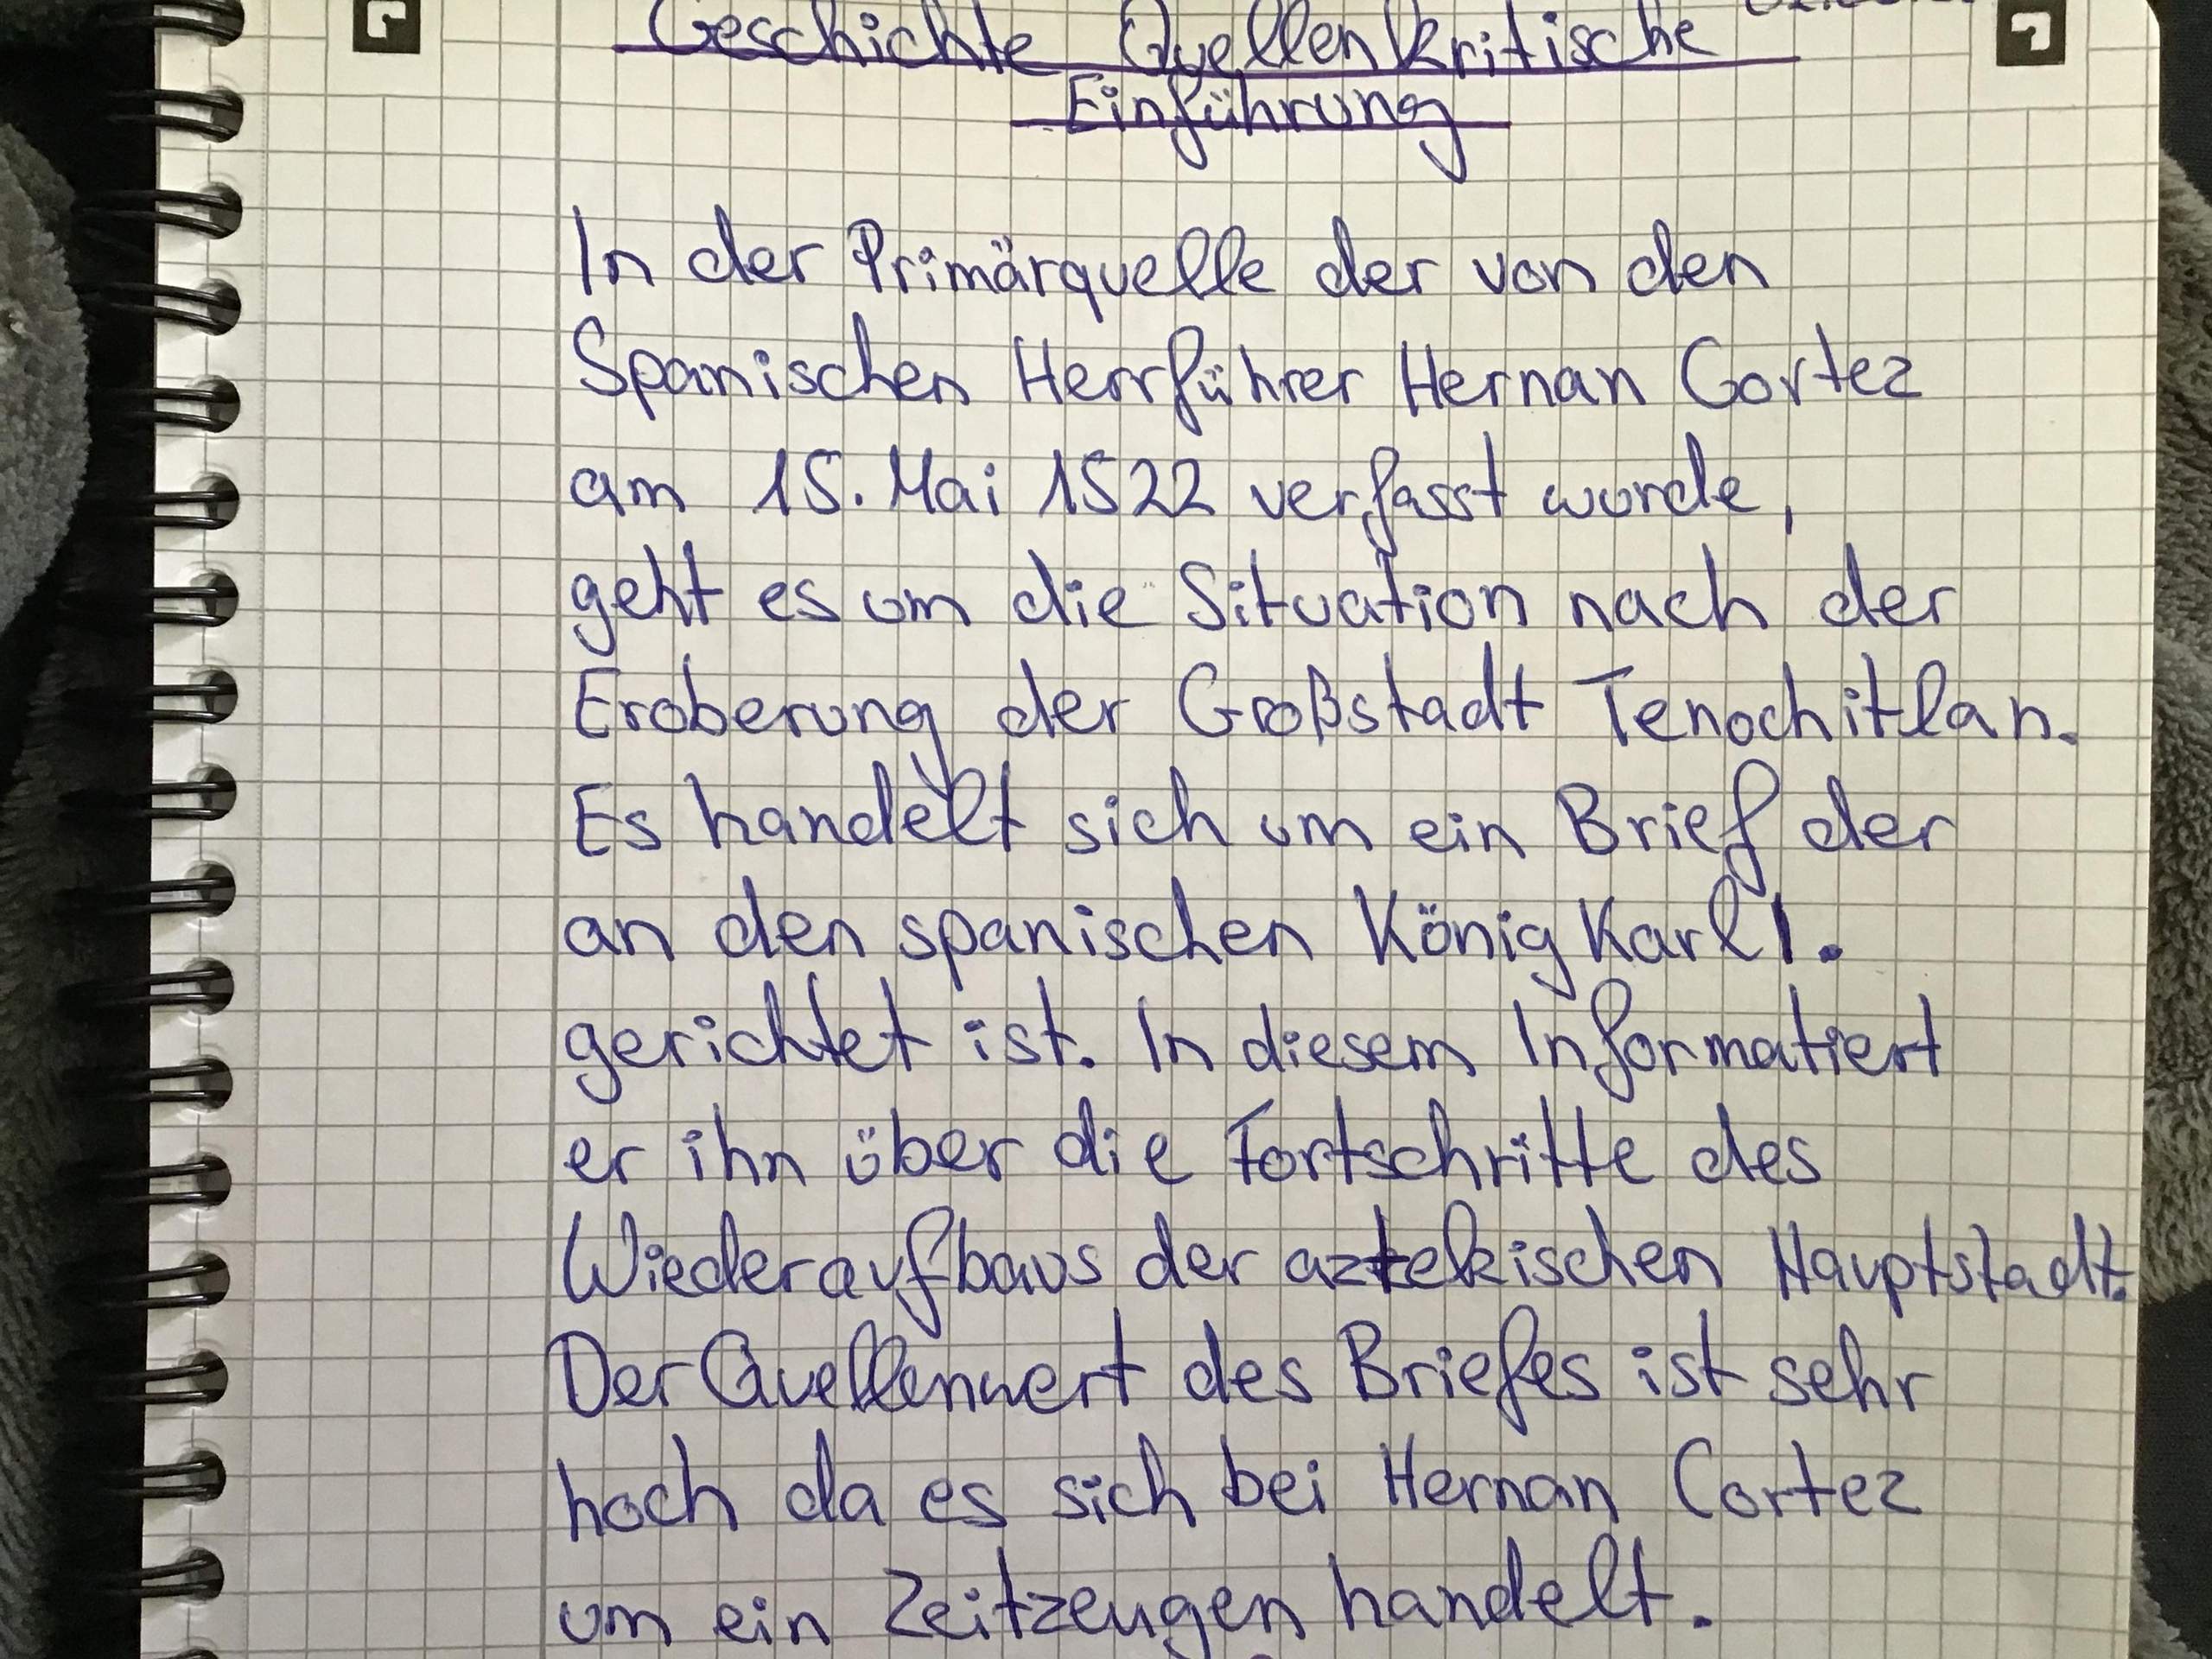 Geschichte Quellenkritische
Einführung
In der Primärquelle der von den
Spanischen Herrführer Hernan Cortez
am 15. Mai 1522 verfasst wurde,
geht es um die Situation nach der
Eroberung der Großstadt Tenochitlan.
Es handelt sich um ein Brief der
an den spanischen König Karl I.
gerichtet ist. In diesem Informatiert
er ihn über die Fortschritte des
Wiederaufbaus der aztekischen Hauptstadt.
Der Quellenwert des Briefes ist sehr
hoch da es sich bei Hernan Cortez
um ein Zeitzeugen handelt.